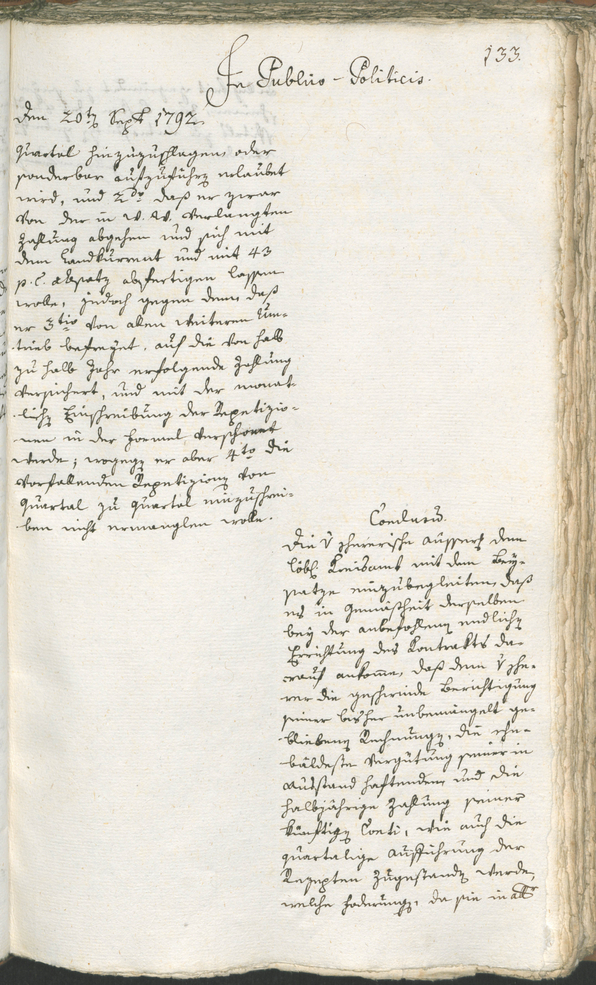 133.
In Publico-Politicis.
den 20ten Sept 1792.
Quartal hinzuzuschlagen oder
sonderbar aufzuführen erlaubt
wird, und 2do daß er zwar
von der in W. W. verlangten
Zahlung abgehen und sich mit
dem Landkurrent und mit 43
p. C. absatz abfertigen lassen
wolle, jedoch gegen dem, daß
er 3tio von allen weiteren Um-
trieb befreyet, auf die von halb
zu halb Jahr erfolgende Zahlung
versichert, und mit der monat-
lichen Einschreibung der Repetizio-
nen in der Formel verschonet
werde; wogegen er aber 4to die
vorfallenden Repetizionen von
Quartal zu Quartal einzuschrei-
ben nicht ermanglen wolle.
Conclusum
Die Aussers dem
löbl. Kreisamt mit dem Bey-
satze einzubegleiten, daß
es in Gemäßheit derselben
bey der anbefohlenen endlichen
Errichtung des Kontrakts da-
rauf ankomme, daß dem
rer die geschwinde Berichtigung
seiner bisher unbemängelt ge-
bliebenen Rechnungen, die ehe-
baldeste Vergütung seiner in
Ausstand haftenden und die
halbjährige Zahlung seiner
künftigen Conti, wie auch die
quartalige Aufführung der
Rezepten zugestanden werde,
welche Foderungen, da sie in all